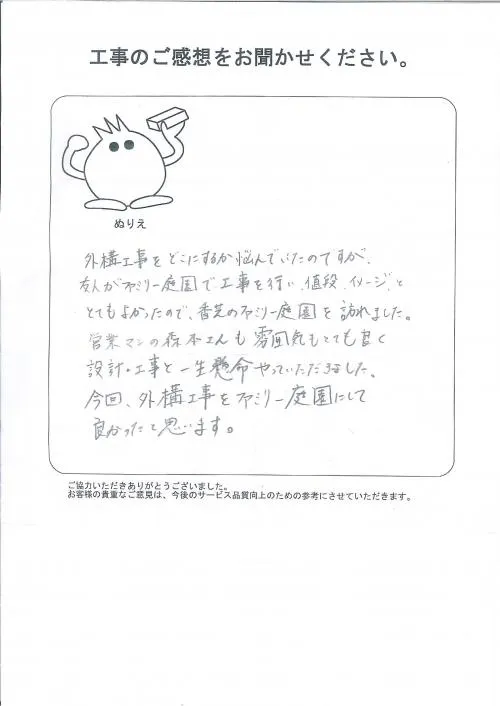 工事のご感想をお聞かせください。
ぬりえ
外構工事をどこにするか悩んでいたのですが、
友人がファミリー庭園で工事を行い、値段、イメージ、と
とてもよかったので、香芝のファミリー庭園を訪れました。
営業マンの森本さんも雰囲気もとても良く
設計・工事と一生懸命やっていただきました。
今回、外構工事をファミリー庭園にして
良かったと思います。
ご協力いただきありがとうございました。
お客様の貴重なご意見は、今後のサービス品質向上のための参考にさせていただきます。